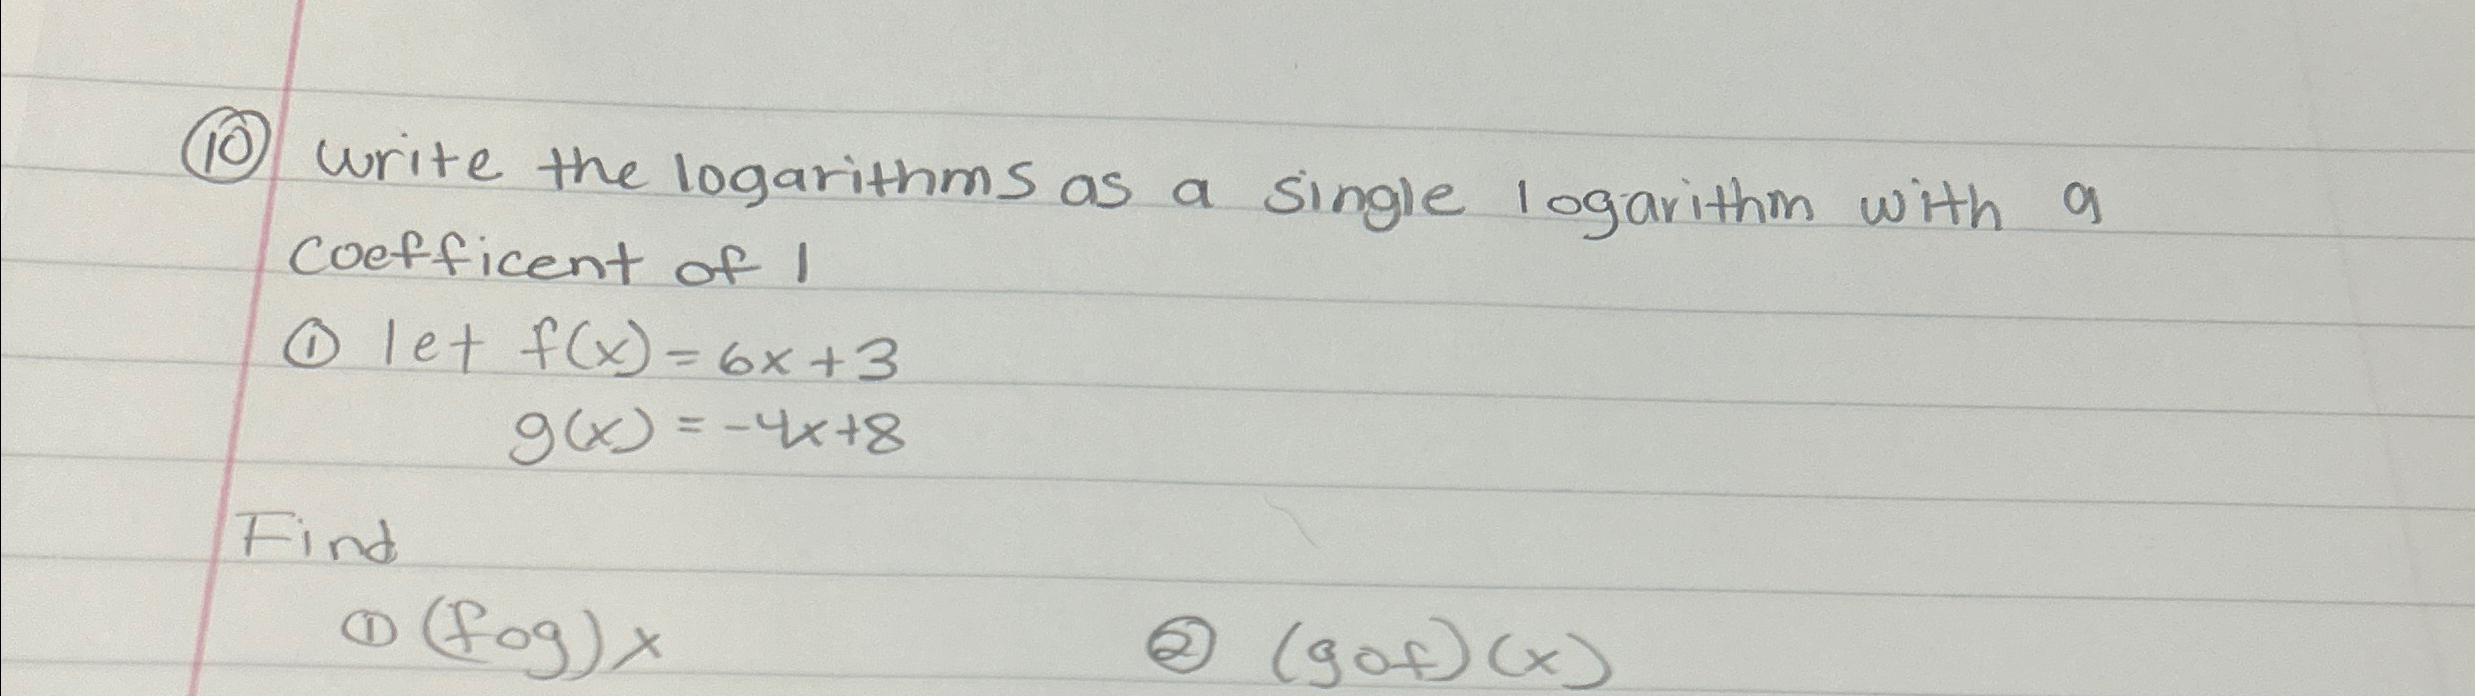 ⑩ write the logarithms as a single logarithm with a
coefficent of 1
① let f(x) = 6x + 3
g(x) = -4x+8
Find
① (fog) x ② (gof) (x)